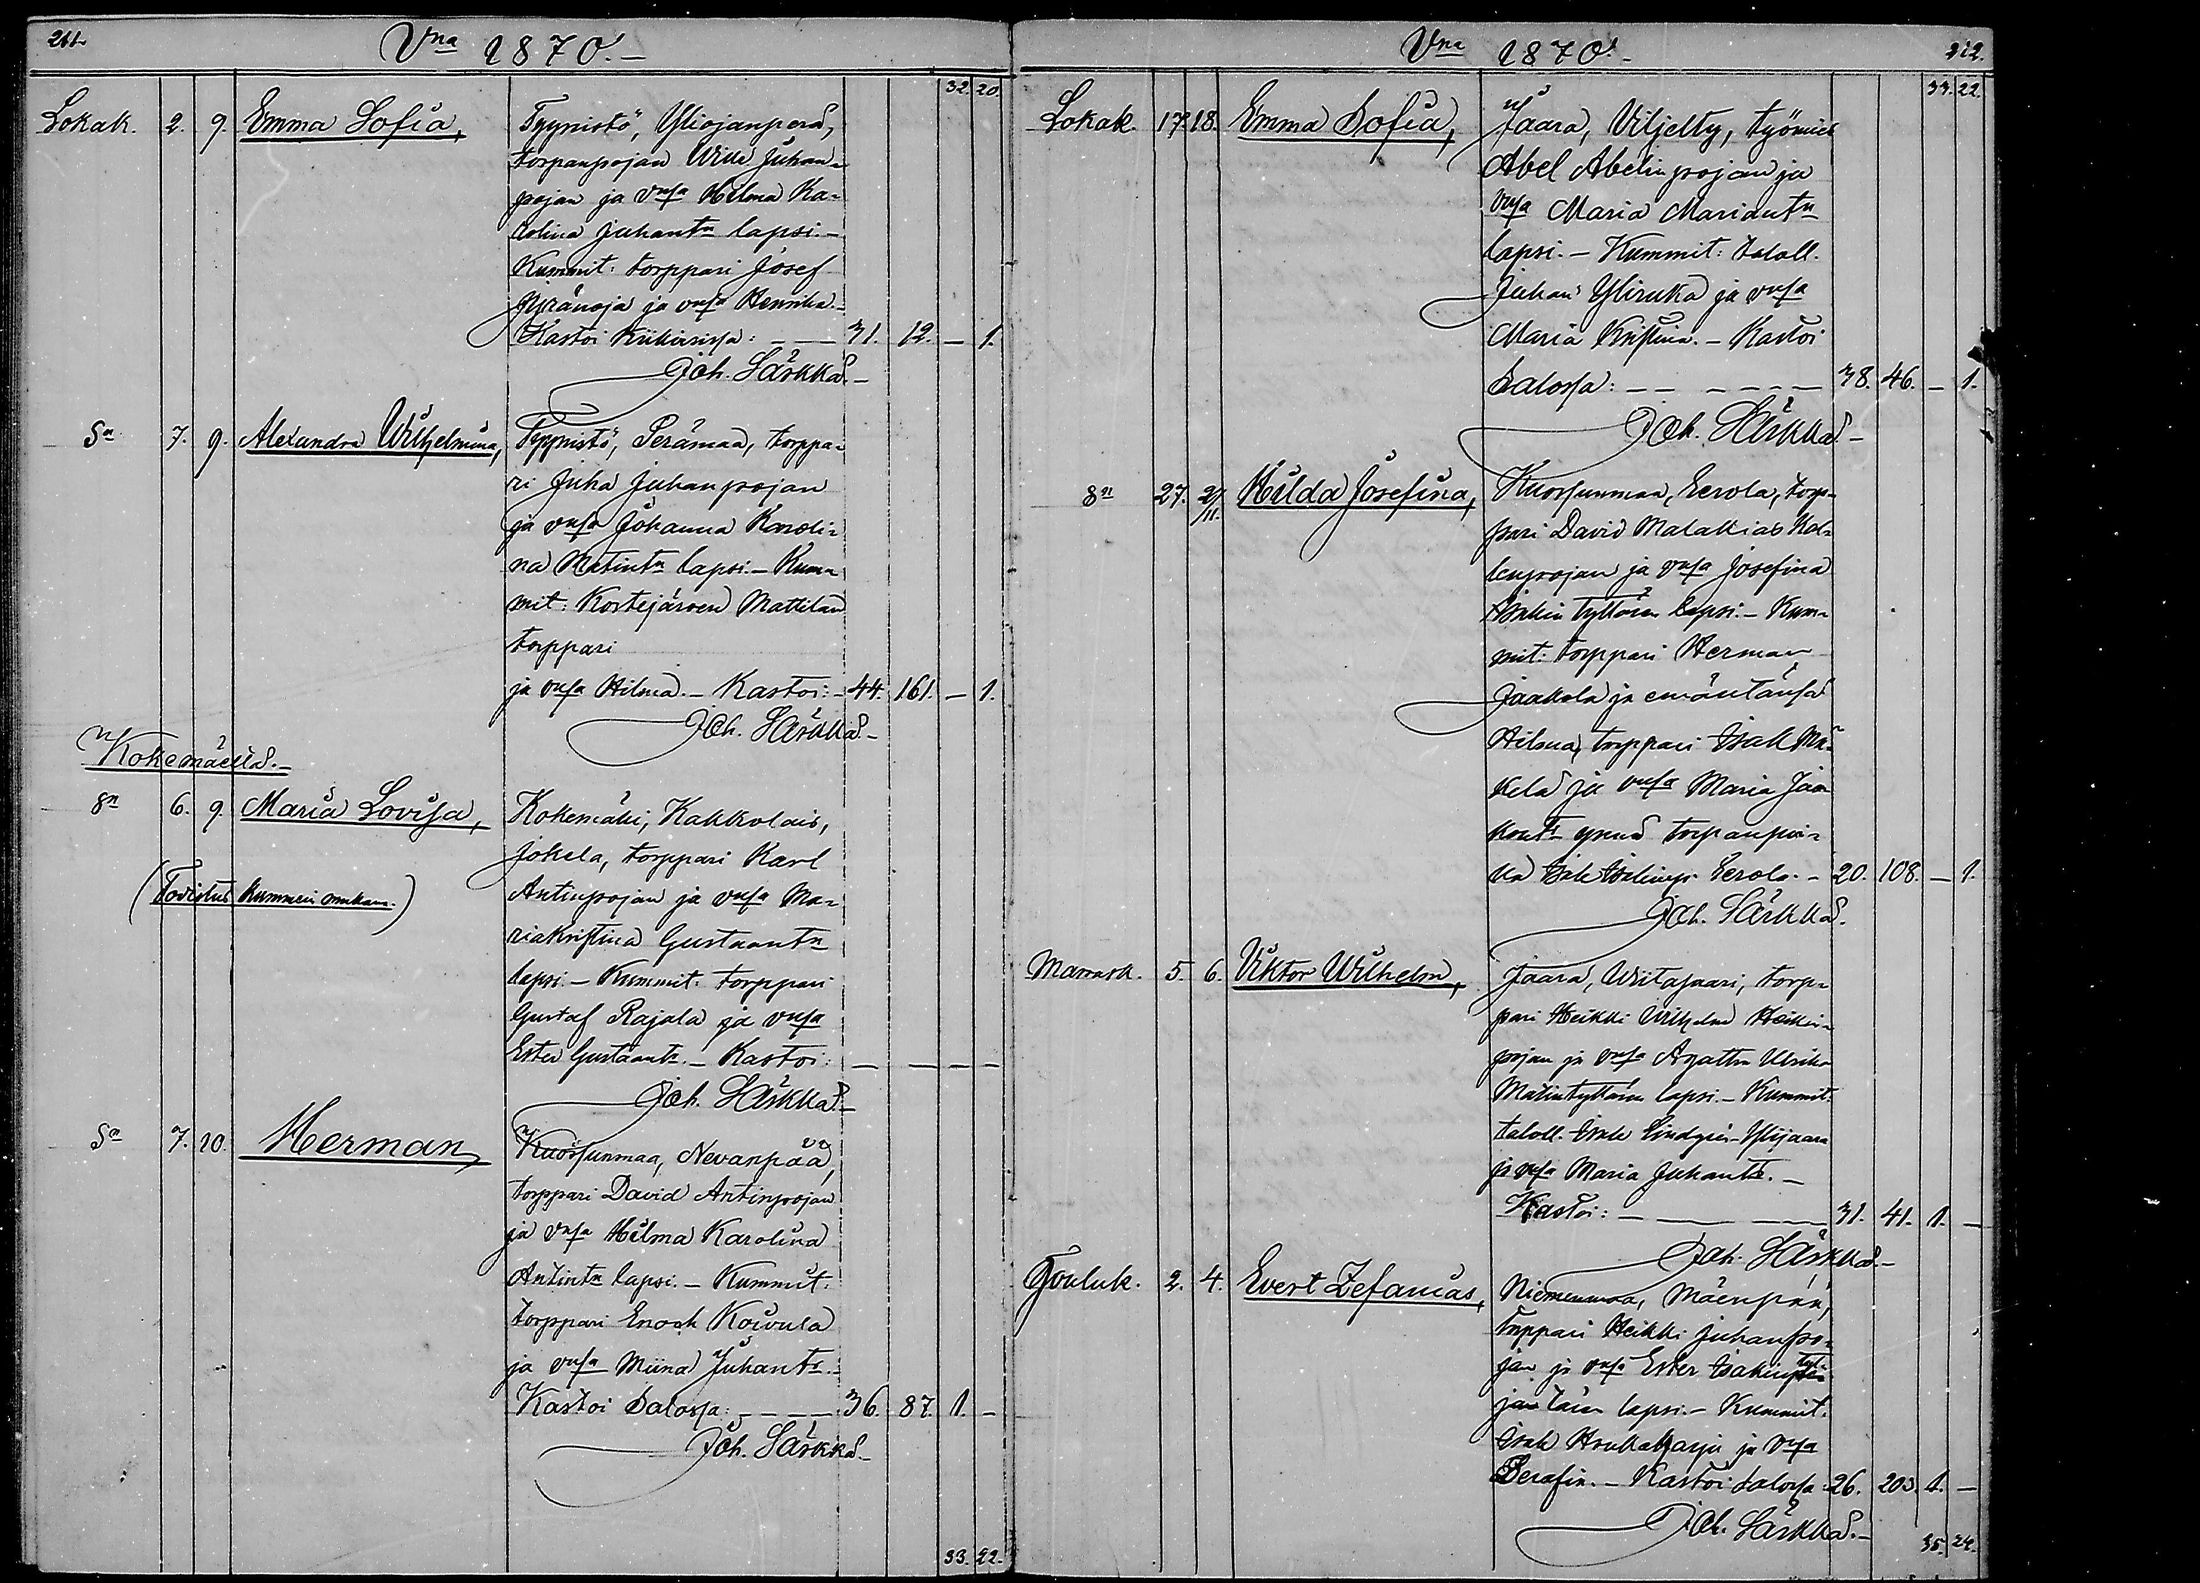 211.
Vna 1870.-
32. 20.
Lokak. 2. 9. Emma Sofia, Tyynistö, Yliojanperä,
torpanpojan Wille Juhan-
pojan ja vnsa Hilma Ka-
rolina Juhantn lapsi.-
Kummit: torppari Josef
ja vnsa Henrika.-
Kastoi Kiikoisissa: - - 31. 12. - 1.
Joh. Särkkä.-
Sn 7. 9. Alexandra Wilhelmina, Tyynistö, Perämaa, torppa-
ri Juha Juhanpojan
ja vnsa Johanna Karoli-
na Matintn lapsi.- Kum-
mit: Kostejärven Mattilan
torppari
ja vnsa Hilma.- Kastoi: - 44. 161. - 1.
Joh. Särkkä.-
Kokemäellä.-
Sn 6. 9. Maria Lovisa, Kokemäki, Kakkolais,
Jokela, torppari Karl
(Todistus kummein mukana.) Antinpojan ja vnsa Ma-
riakristina Gustaantn
lapsi.- Kummit: torppari
Gustaf Rajala ja vnsa
Ester Gustaant.- Kastoi: - - - -
Joh. Särkkä.-
Sn 7. 10. Herman, Kuorsunmaa, Nevanpää,
torppari David Antinpojan
ja vnsa Hilma Karolina
Antintn lapsi.- Kummit:
torppari Enoch Koivula
ja vnsa Miina Juhantr.-
Kastoi Salossa: - - - 36. 87. 1. -
Joh. Särkkä.-
33. 22.
Vna 1870.-
212.
33. 22.
Lokak. 17. 18. Emma Sofia, Jaara, Viljelty, työmies
Abel Abelinpojan ja
vnsa Maria Mariantn
lapsi.- Kummit: taloll.
Juhan Yliruka ja vnsa
Maria Kristina.- Kastoi
Salossa: - - - - - 38. 46. - 1.
Joh. Särkkä.-
Sn 27. 27/11. Hilda Josefina, Kuorsunmaa, Eerola, torp-
pari David Malakias Kal-
lenpojan ja vnsa Josefina
Isakin tyttären lapsi.- Kum-
mit: torppari Herman
Jaakola ja emäntänsä
Hilma, torppari Isak Mä-
kelä ja vnsa Maria Jaa
kont ynnä torpanpoi-
ka Isak Eerola.- 20. 108. - 1.
Joh. Särkkä.
Marrask. 5. 6. Viktor Wilhelm, Jaara, Wiitasaari, torp-
pari Heikki Wilhelm Heikin-
pojan ja vnsa Agatha Ulrika
Matintyttären lapsi.- Kummit:
taloll. Isak Lindgrén-Ylijaara
ja vnsa Maria Juhantr.-
Kastoi: - - - 31. 41. 1. -
Joh. Särkkä.-
Jouluk. 2. 4. Evert Zefanias, Niemenmaa, Mäenpää,
torppari Heikki Juhanpo-
jan ja vnsa Ester Isakin tyt-
tären lapsi.- Kummit:
Isak Haukaharju ja vnsa
Serafin.- Kastoi Salossa: 26. 203. 1. -
Joh. Särkkä.-
35. 24.